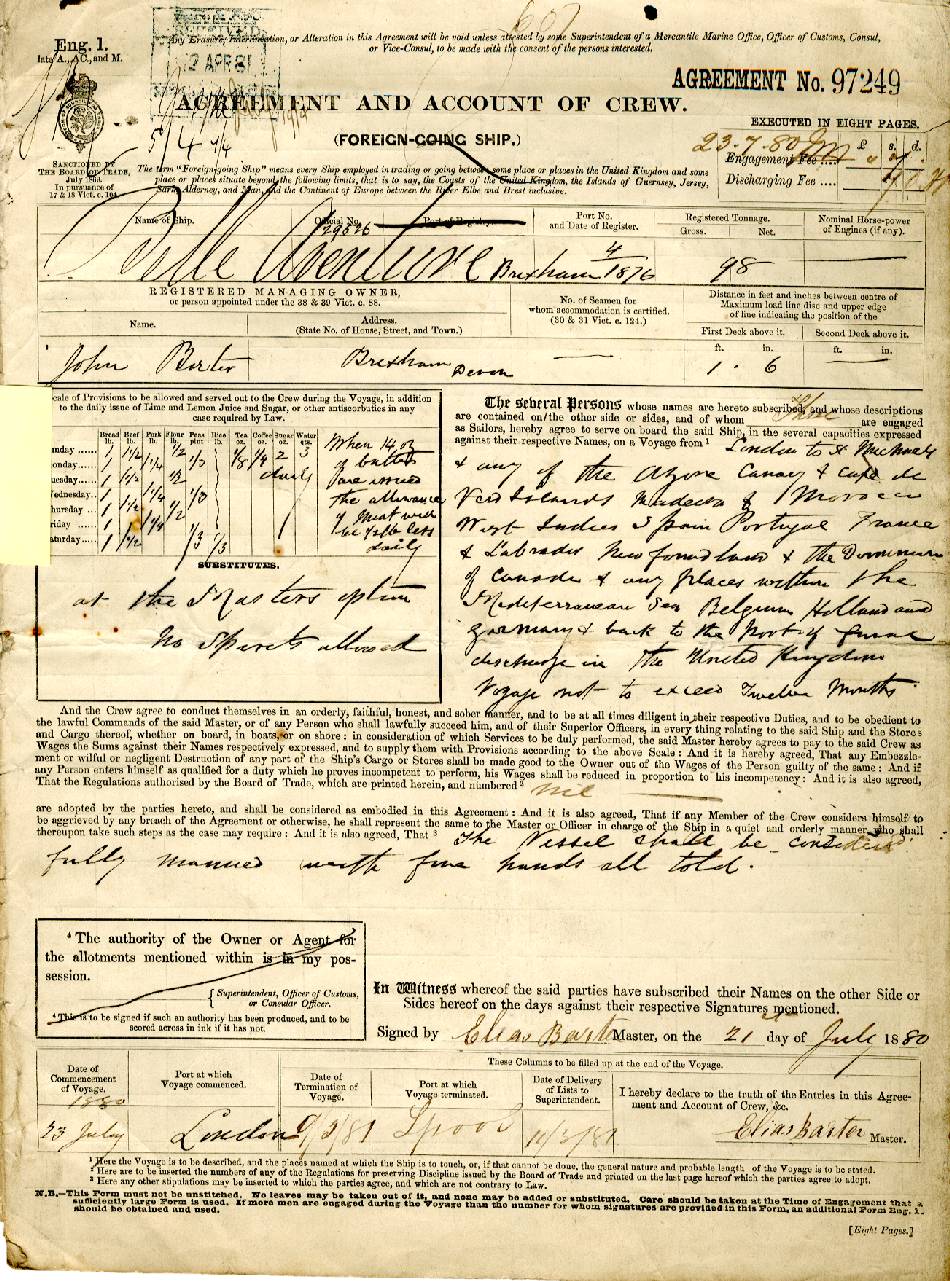 607
Any Erasure, Interlineation, or Alteration in this Agreement will be void unless attested by some Superintendent of a Mercantile Marine Office, Officer of Customs, Consul,
or Vice-Consul, to be made with the consent of the persons interested.
Eng. 1.
late A., AC., and M.
2 APR 81
AGREEMENT No. 97249
AGREEMENT AND ACCOUNT OF CREW.
(FOREIGN-GOING SHIP.)
EXECUTED IN EIGHT PAGES.
5/4
23-7-80
£ s. d.
Engagement Fee
Discharging Fee ....
SANCTIONED BY
THE BOARD OF TRADE,
July 1881.
In pursuance of
17 & 18 Vict. c. 104.
The term "Foreign-going Ship" means every Ship employed in trading or going between some place or places in the United Kingdom and some
place or places situate beyond the following limits, that is to say, the Coasts of the United Kingdom, the Islands of Guernsey, Jersey,
Sark, Alderney, and Man, and the Continent of Europe between the River Elbe and Brest inclusive.
Name of Ship. Official No. Port of Registry. Port No. and Date of Register. Registered Tonnage. Gross. Net. Nominal Horse-power of Engines (if any).
Belle Aventure Brixham 4/1876 98
REGISTERED MANAGING OWNER,
or person appointed under the 38 & 39 Vict. c. 88.
Name. Address. (State No. of House, Street, and Town.)
No. of Seamen for whom accommodation is certified. (30 & 31 Vict. c. 124.)
Distance in feet and inches between centre of
Maximum load line disc and upper edge
of line indicating the position of the
First Deck above it. Second Deck above it.
ft. in. ft. in.
John Barter Brixham Devon 1 . 6
cale of Provisions to be allowed and served out to the Crew during the Voyage, in addition
to the daily issue of Lime and Lemon Juice and Sugar, or other antiscorbutics in any
case required by Law.
Bread lb. Beef lb. Pork lb. Flour lb. Peas pint Tea oz. Coffee oz. Sugar oz. Water
unday ..... 1 1½ ½ 1/8 ¼ 2 3
onday ..... 1 1¼ 1/3
uesday ..... 1 1½ ½ daily
Wednesday ..... 1 1¼ 1/3
hursday ..... 1 1½ ½
riday ..... 1 1¼ 1/3
aturday ..... 1 1½
When
of butter
are issued
the allowance
of Meat will
be less
daily
SUBSTITUTES.
at the Masters option
No Spirits allowed
The several Persons whose names are hereto subscribed, and whose descriptions
are contained on the other side or sides, and of whom are engaged
as Sailors, hereby agree to serve on board the said Ship, in the several capacities expressed
against their respective Names, on a Voyage from ¹ London to St Michaels
& any of the Azore Canary & Cape de
Verd Islands Madeira & Morocco
West Indies Spain Portugal France
& Labrador Newfoundland & the Dominion
of Canada & any places within the
Mediterranean Sea Belgium Holland and
Germany & back to the Port of final
discharge in the United Kingdom
Voyage not to exceed Twelve Months
And the Crew agree to conduct themselves in an orderly, faithful, honest, and sober manner, and to be at all times diligent in their respective Duties, and to be obedient to
the lawful Commands of the said Master, or of any Person who shall lawfully succeed him, and of their Superior Officers, in every thing relating to the said Ship and the Stores
and Cargo thereof, whether on board, in boats, or on shore: in consideration of which Services to be duly performed, the said Master hereby agrees to pay to the said Crew as
Wages the Sums against their Names respectively expressed, and to supply them with Provisions according to the above Scale: And it is hereby agreed, That any Embezzle-
ment or wilful or negligent Destruction of any part of the Ship's Cargo or Stores shall be made good to the Owner out of the Wages of the Person guilty of the same: And if
any Person enters himself as qualified for a duty which he proves incompetent to perform, his Wages shall be reduced in proportion to his incompetency: And it is also agreed,
That the Regulations authorised by the Board of Trade, which are printed herein, and numbered ² nil
are adopted by the parties hereto, and shall be considered as embodied in this Agreement: And it is also agreed, That if any Member of the Crew considers himself to
be aggrieved by any breach of the Agreement or otherwise, he shall represent the same to the Master or Officer in charge of the Ship in a quiet and orderly manner, who shall
thereupon take such steps as the case may require: And it is also agreed, That ³ The Vessel shall be considered
fully manned with five hands all told.
⁴ The authority of the Owner or Agent for
the allotments mentioned within is in my pos-
session.
Superintendent, Officer of Customs,
or Consular Officer.
⁴ This is to be signed if such an authority has been produced, and to be
scored across in ink if it has not.
In Witness whereof the said parties have subscribed their Names on the other Side or
Sides hereof on the days against their respective Signatures mentioned.
Signed by Elias Barter Master, on the 21st day of July 1880
These Columns to be filled up at the end of the Voyage.
Date of Commencement of Voyage. Port at which Voyage commenced. Date of Termination of Voyage. Port at which Voyage terminated. Date of Delivery of Lists to Superintendent.
I hereby declare to the truth of the Entries in this Agree-
ment and Account of Crew, &c.
1880
23 July London 9/3/81 Lpool 10/3/81 Elias Barter Master.
¹ Here the Voyage is to be described, and the places named at which the Ship is to touch, or, if that cannot be done, the general nature and probable length of the Voyage is to be stated.
² Here are to be inserted the numbers of any of the Regulations for preserving Discipline issued by the Board of Trade and printed on the last page hereof which the parties agree to adopt.
³ Here any other stipulations may be inserted to which the parties agree, and which are not contrary to Law.
N.B.—This Form must not be unstitched. No leaves may be taken out of it, and none may be added or substituted. Care should be taken at the Time of Engagement that a
sufficiently large Form is used. If more men are engaged during the Voyage than the number for whom signatures are provided in this Form, an additional Form Eng. 1.
should be obtained and used.
[Eight Pages.]